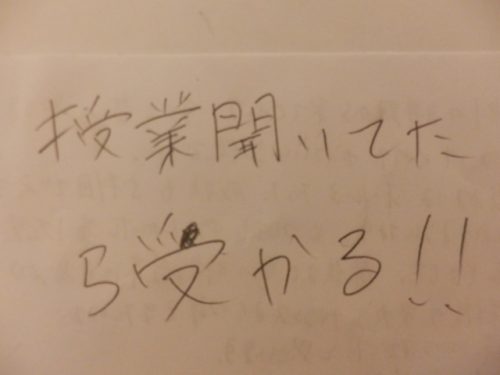 授業開いてた
ら受かる!!